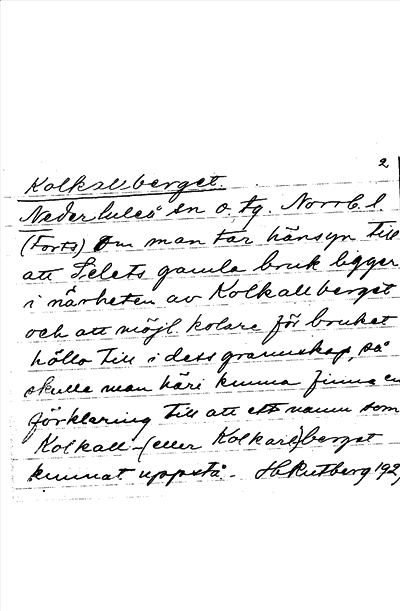 2
Kolkallberget.
Nederluleå sn o. tg. Norrb. l.
(Forts) Om man tar hänsyn till
att Selets gamla bruk ligger
i närheten av Kolkallberget
och att möjl. kolare för bruket
hållo till i dess grannskap, så
skulle man häri kunna finna en
förklaring till att ett namn som
Kolkall- (eller Kolkarl)berget
kunnat uppstå. - Rutberg 192